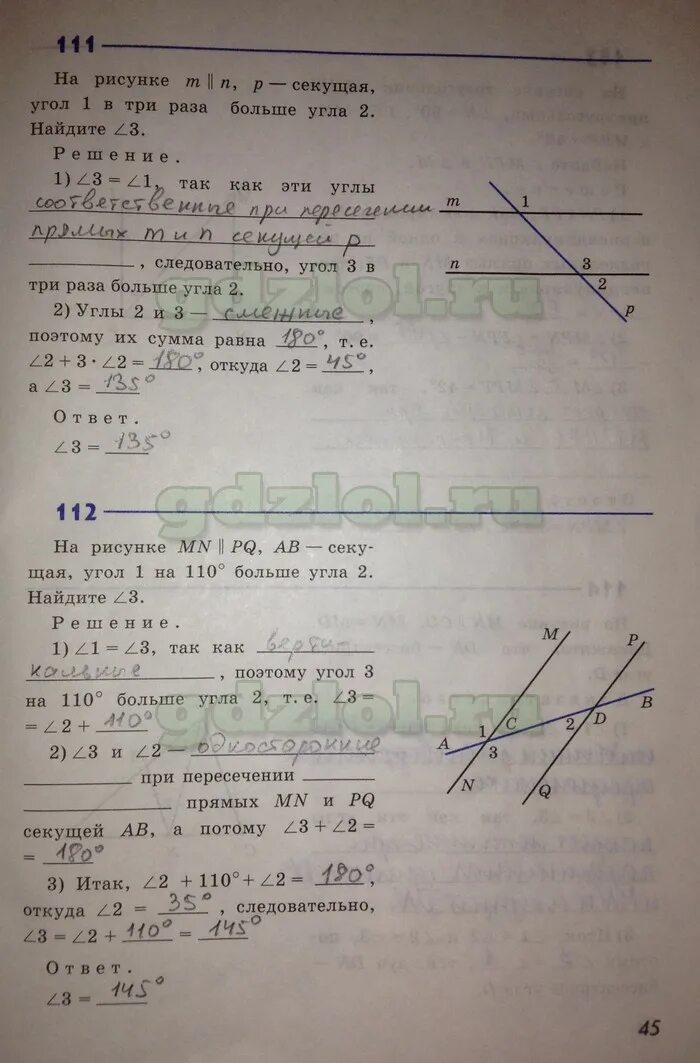 111
На рисунке m ∥ n, p — секущая,
угол 1 в три раза больше угла 2.
Найдите ∠3.
Решение.
1) ∠3 = ∠1, так как эти углы
соответственные при пересечении
прямых m и n секущей p
, следовательно, угол 3 в
три раза больше угла 2.
2) Углы 2 и 3 — смежные ,
поэтому их сумма равна 180°, т. е.
∠2 + 3 · ∠2 = 180°, откуда ∠2 = 45°,
а ∠3 = 135°
Ответ.
∠3 = 135°
m
1
n
3
2
p
gdzlol.ru
gdzlol.ru
112
На рисунке MN ∥ PQ, AB — секу-
щая, угол 1 на 110° больше угла 2.
Найдите ∠3.
Решение.
1) ∠1 = ∠3, так как верти-
кальные , поэтому угол 3
на 110° больше угла 2, т. е. ∠3 =
= ∠2 + 110°
2) ∠3 и ∠2 — односторонние
при пересечении
прямых MN и PQ
секущей AB, а потому ∠3 + ∠2 =
= 180°
3) Итак, ∠2 + 110° + ∠2 = 180°,
откуда ∠2 = 35° , следовательно,
∠3 = ∠2 + 110° = 145°
Ответ.
∠3 = 145°
M
P
B
1
C
2
D
A
3
N
Q
gdzlol.ru
gdzlol.ru
45